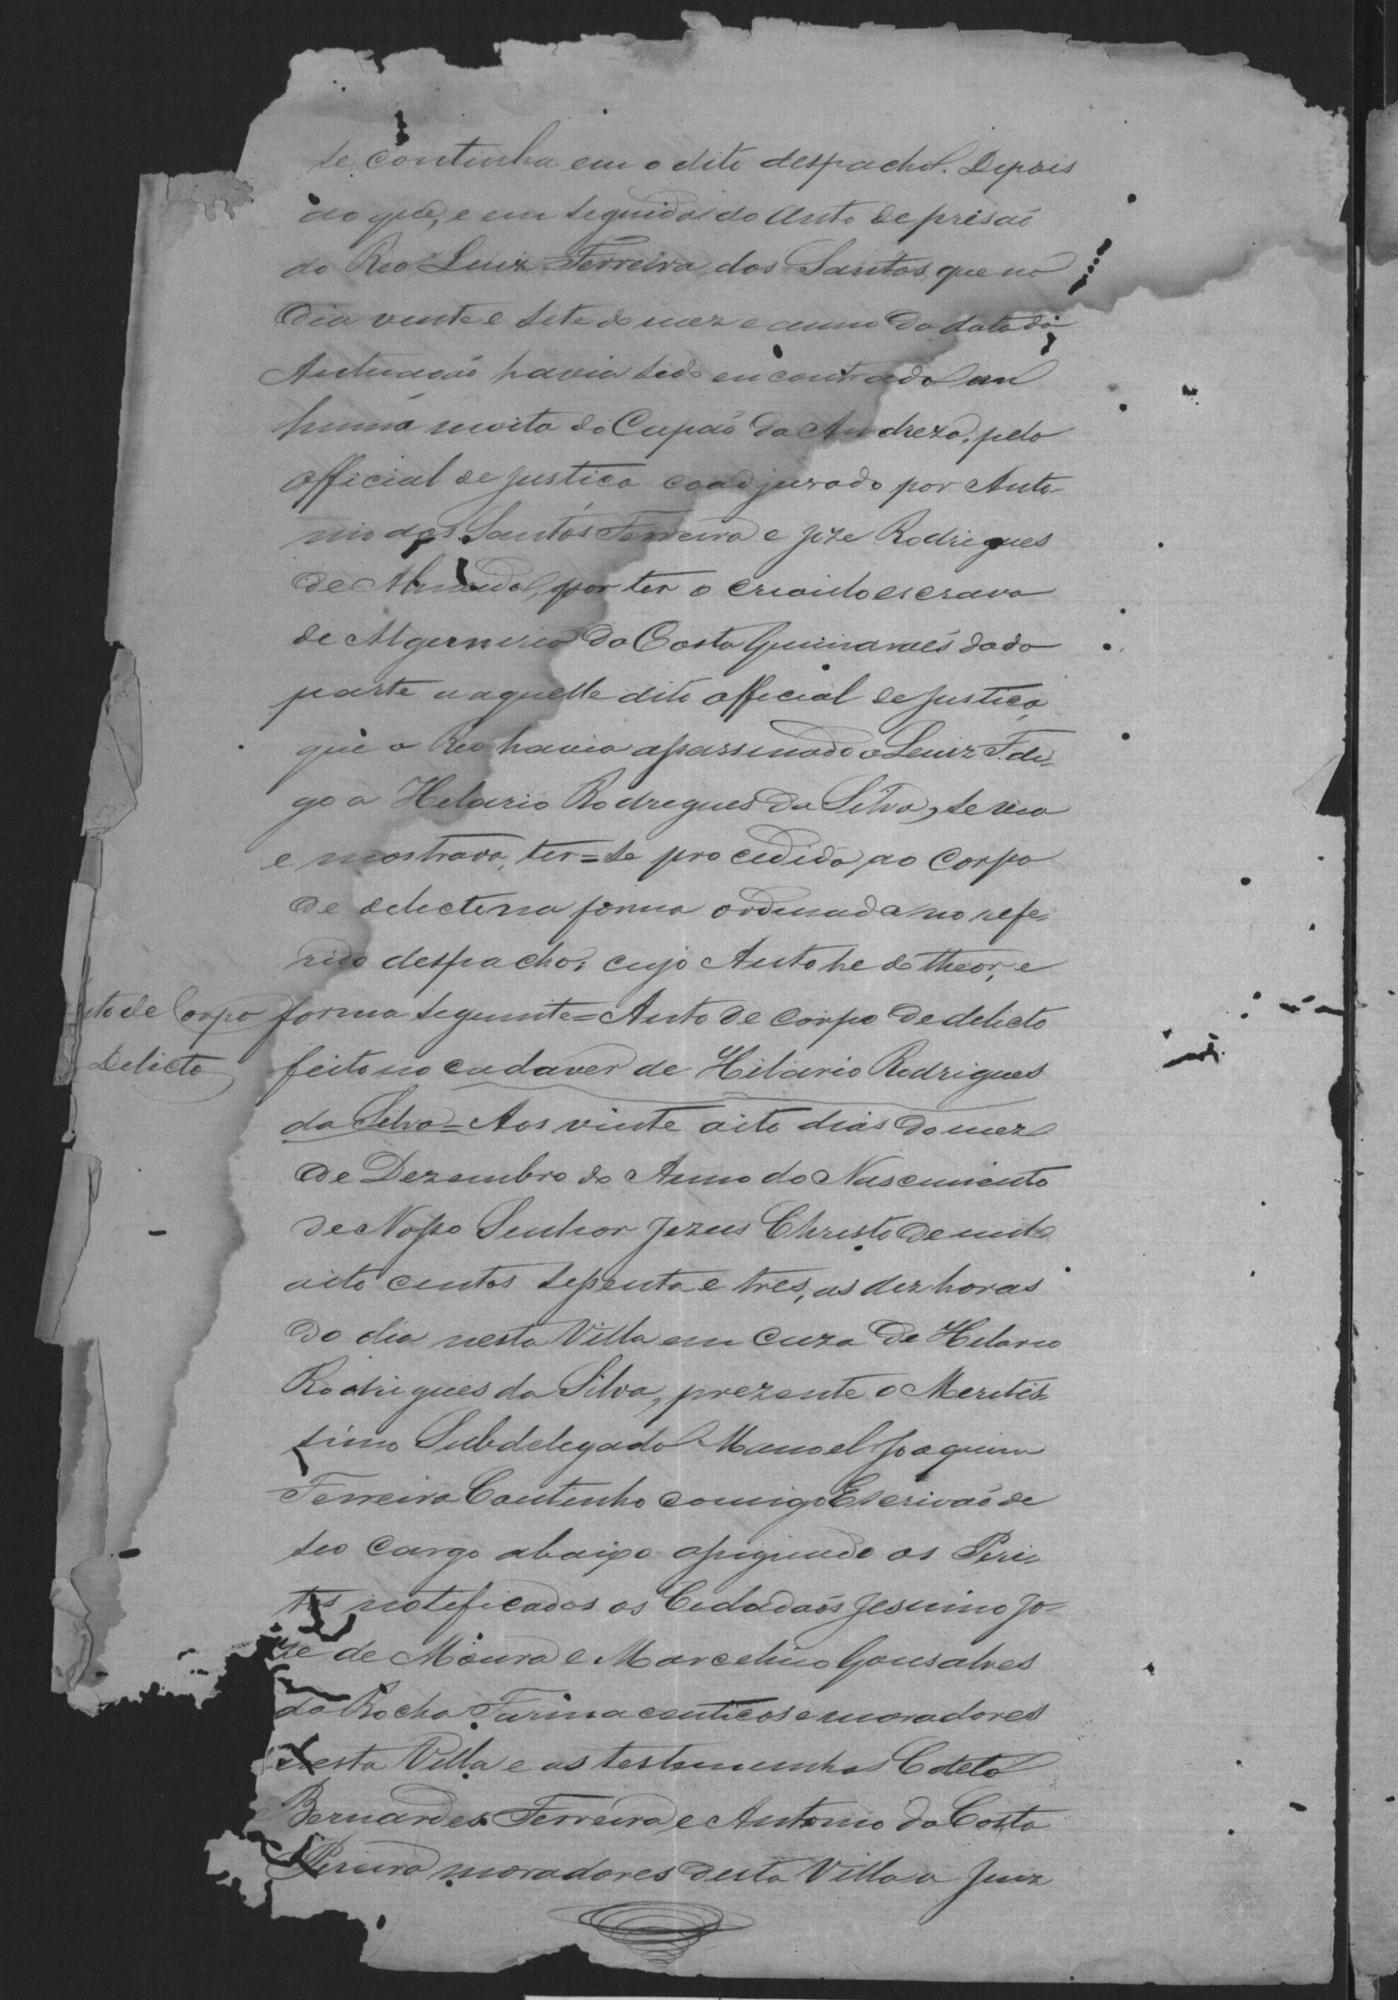 se continha em o dito despacho. Depois
do que, e em seguida do Auto de prisaõ
do Reo Luiz Ferreira dos Santos, que no
dia vinte e sete do mez e anno da data da
Autuacaõ havia sido encontrado em
huma moita do Capaõ da Andreza, pelo
official de justica coadjuvado por Anto-
nio dos Santos Ferreira e Joze Rodrigues
de Almeida, por ter o crioulo escravo
de da Costa Guimaraẽs dado
parte a aquelle dito official de justica,
que o Reo havia assassinado a Luiz F. di-
go a Helario Rodregues da Silva, se via
e mostrava, ter=se procedido ao corpo
de delicto na forma ordenada no refe-
rido despacho, cujo Auto he do theor, e
Auto de Corpo
Delicto
forma seguinte= Auto de corpo de delicto
feito no cadaver de Hilario Rodrigues
da Silva= Aos vinte oito dias do mez
de Dezembro do Anno do Nascimento
de Nosso Senhor Jezus Christo de mil
oito centos sessenta e tres, as dez horas
do dia nesta Villa em caza de Helario
Rodrigues da Silva, prezente o Meretis-
simo Subdelegado Manoel Joaquim
Ferreira Coutinho comigo Escrivaõ de
seo cargo abaixo assignado os Peri-
tos noteficados os Cidadaõs Jesuino Jo-
ze de Moura e Marcelino Gonsalves
da Rocha Farmaceuticos e moradores
nesta Villa e as testemunhas
Bernardes Ferreira, e Antonio da Costa
Pereira moradores desta Villa o Juiz